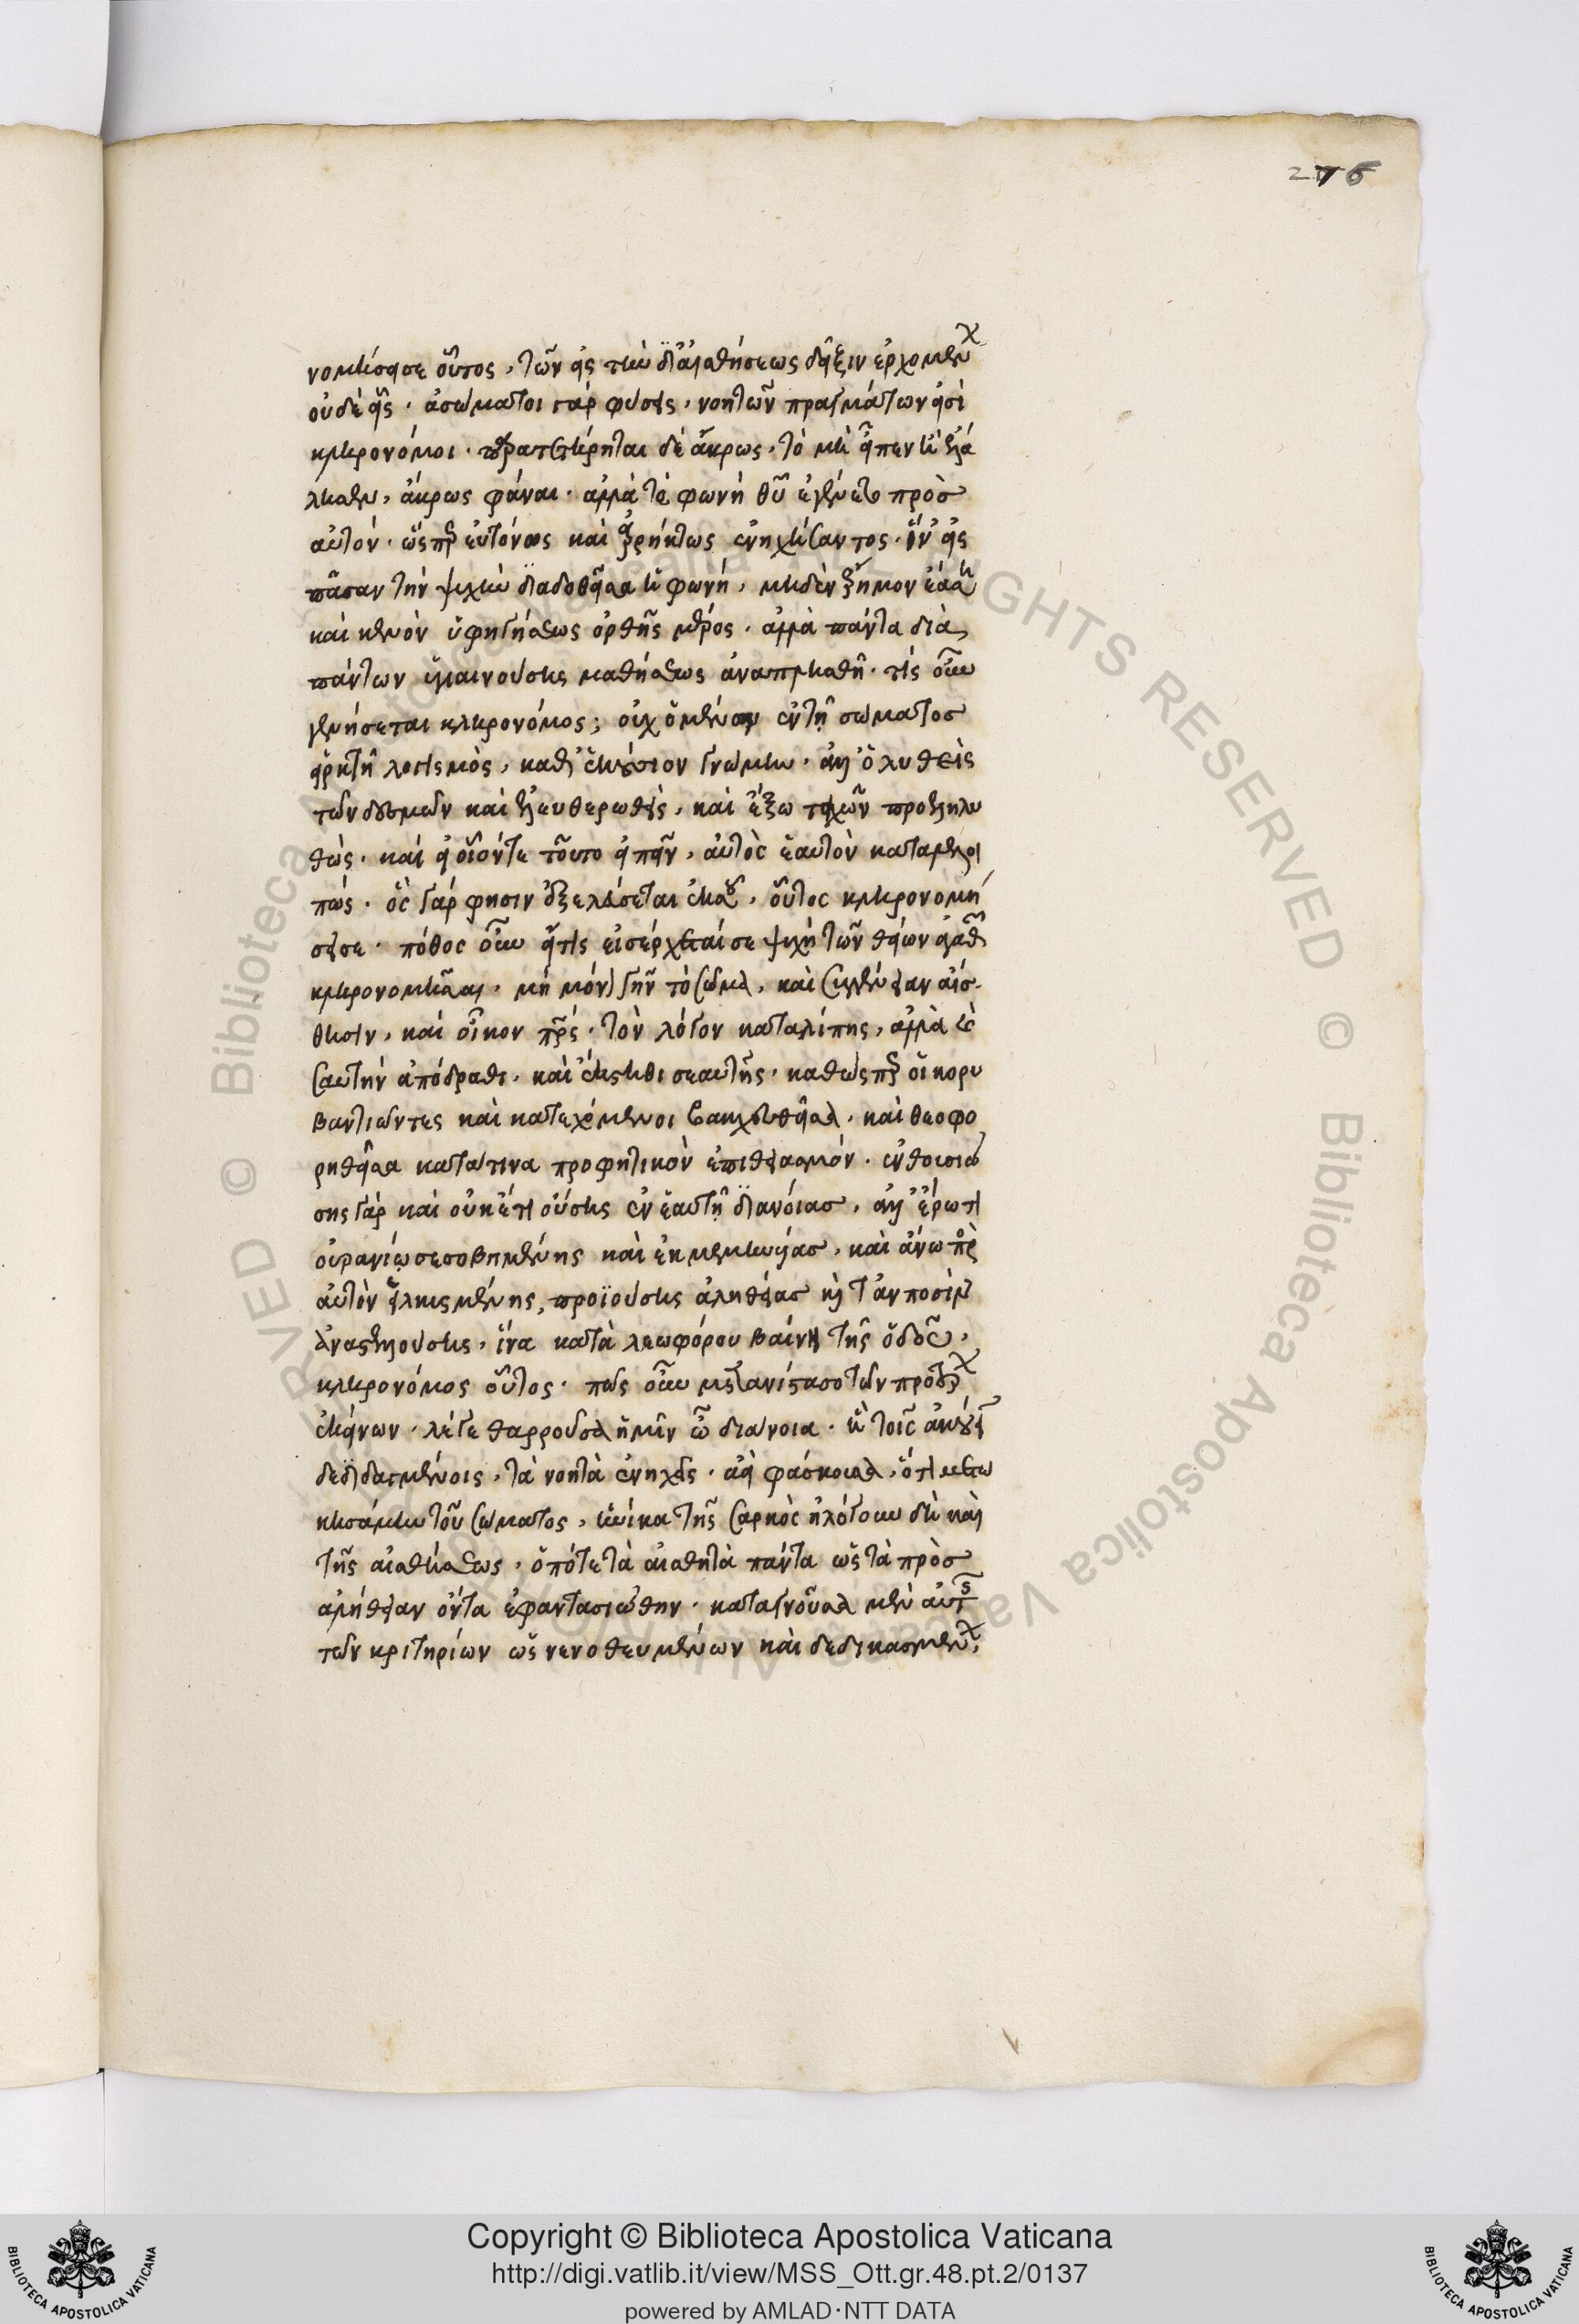 276
νομήσει σε οὗτος, τῶν εἰς τὴν δι' αἰσθήσεως δεῖξιν ἐρχομένων
οὐδὲ εἷς. ἀσώματοι γὰρ φύσεις, νοητῶν πραγμάτων εἰσὶ
κληρονόμοι. παρατετήρηται δὲ ἄκρως, τὸ μὴ εἶπεν ἢ ἐλά
λησεν, ἄκρως φάναι. ἀλλὰ τὸ φωνὴ θῦ ἐγένετο πρὸσ
αὐτόν. ὥσπερ εὐτόνως καὶ ἀρρήκτως ἐνηχήσαντος. ἵν' εἰς
πᾶσαν τὴν ψυχὴν διαδοθεῖσα ἡ φωνή, μηδὲν ἔρημον ἐάσῃ
καὶ κενὸν ὑφηγήσεως ὀρθῆς μέρος. ἀλλὰ πάντα διὰ
πάντων ὑγιαινούσης μαθήσεως ἀναπλησθῇ. τίς οὖν
γενήσεται κληρονόμος; οὐχ ὁ μένων ἐν τῇ σώματοσ
εἱρκτῇ λογισμὸς, καθ' ἑκούσιον γνώμην. ἀλλ' ὁ λυθεὶς
τῶν δεσμῶν καὶ ἐλευθερωθεὶς, καὶ ἔξω τειχῶν προεληλυ
θώς. καὶ εἰ οἷόν τε τοῦτο εἰπεῖν, αὐτὸς ἑαυτὸν καταλελοι
πώς. ὃς γάρ φησιν ἐξελεύσεται ἐκ σοῦ, οὗτος κληρονομή
σει σε. πόθος οὖν εἴ τις εἰσέρχεταί σε ψυχὴ τῶν θείων ἀγαθῶν
κληρονομῆσαι, μὴ μόνον γῆν τὸ σῶμα, καὶ συγγένειαν αἴσ
θησιν, καὶ οἶκον πρς. τὸν λόγον καταλίπῃς, ἀλλὰ καὶ
σαυτὴν ἀπόδραθι. καὶ ἔκστηθι σεαυτῆς. καθώσπερ οἱ κορυ
βαντιῶντες καὶ κατεχόμενοι βακχευθεῖσα. καὶ θεοφο
ρηθεῖσα κατά τινα προφητικὸν ἐπιθειασμόν. ἐνθουσιώ
σης γὰρ καὶ οὐκέτι οὔσης ἐν ἑαυτῇ διανοίασ, ἀλλ' ἔρωτι
οὐρανίῳ σεσοβημένης καὶ ἐκμεμηνυίασ, καὶ ἄνω πρὸς
αὐτὸν εἱλκυσμένης, προϊούσης ἀληθείασ καὶ τἀν ποσὶν
ἀναστελλούσης, ἵνα κατὰ λεωφόρου βαίνῃ τῆς ὁδοῦ,
κληρονόμος οὗτος. πῶς οὖν μετανίστασο τῶν προτέρων
ἐκείνων. λέγε θαρροῦσα ἡμῖν ὦ διάνοια. ἣ τοῖς ἀκούειν
δεδιδαγμένοις, τὰ νοητὰ ἐνηχεῖς. ἀεὶ φάσκουσα, ὅτι μετῳ
κησάμην τοῦ σώματος, ἡνίκα τῆς σαρκὸς ἠλόγουν δὴ καὶ
τῆς αἰσθήσεως, ὁπότε τὰ αἰσθητὰ πάντα ὡς τὰ πρὸσ
ἀλήθειαν ὄντα ἐφαντασιώθην. καταγνοῦσα μὲν αὐτῆς
τῶν κριτηρίων ὡς νενοθευμένων καὶ δεδικασμένων,
Copyright © Biblioteca Apostolica Vaticana
http://digi.vatlib.it/view/MSS_Ott.gr.48.pt.2/0137
powered by AMLAD·NTT DATA